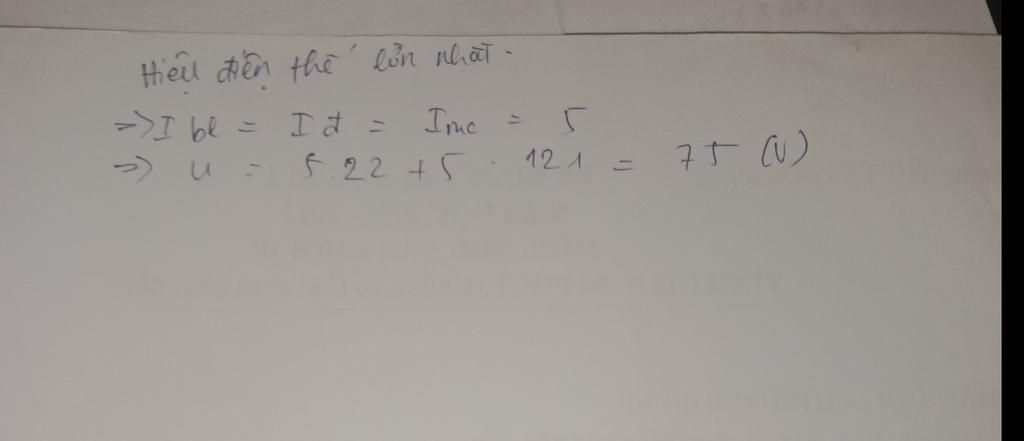 Hiệu điện thế lớn nhất.
=> I bl = I đ = Imc = 5
=> U = 5.22 + 5 . 121 = 75 (V)